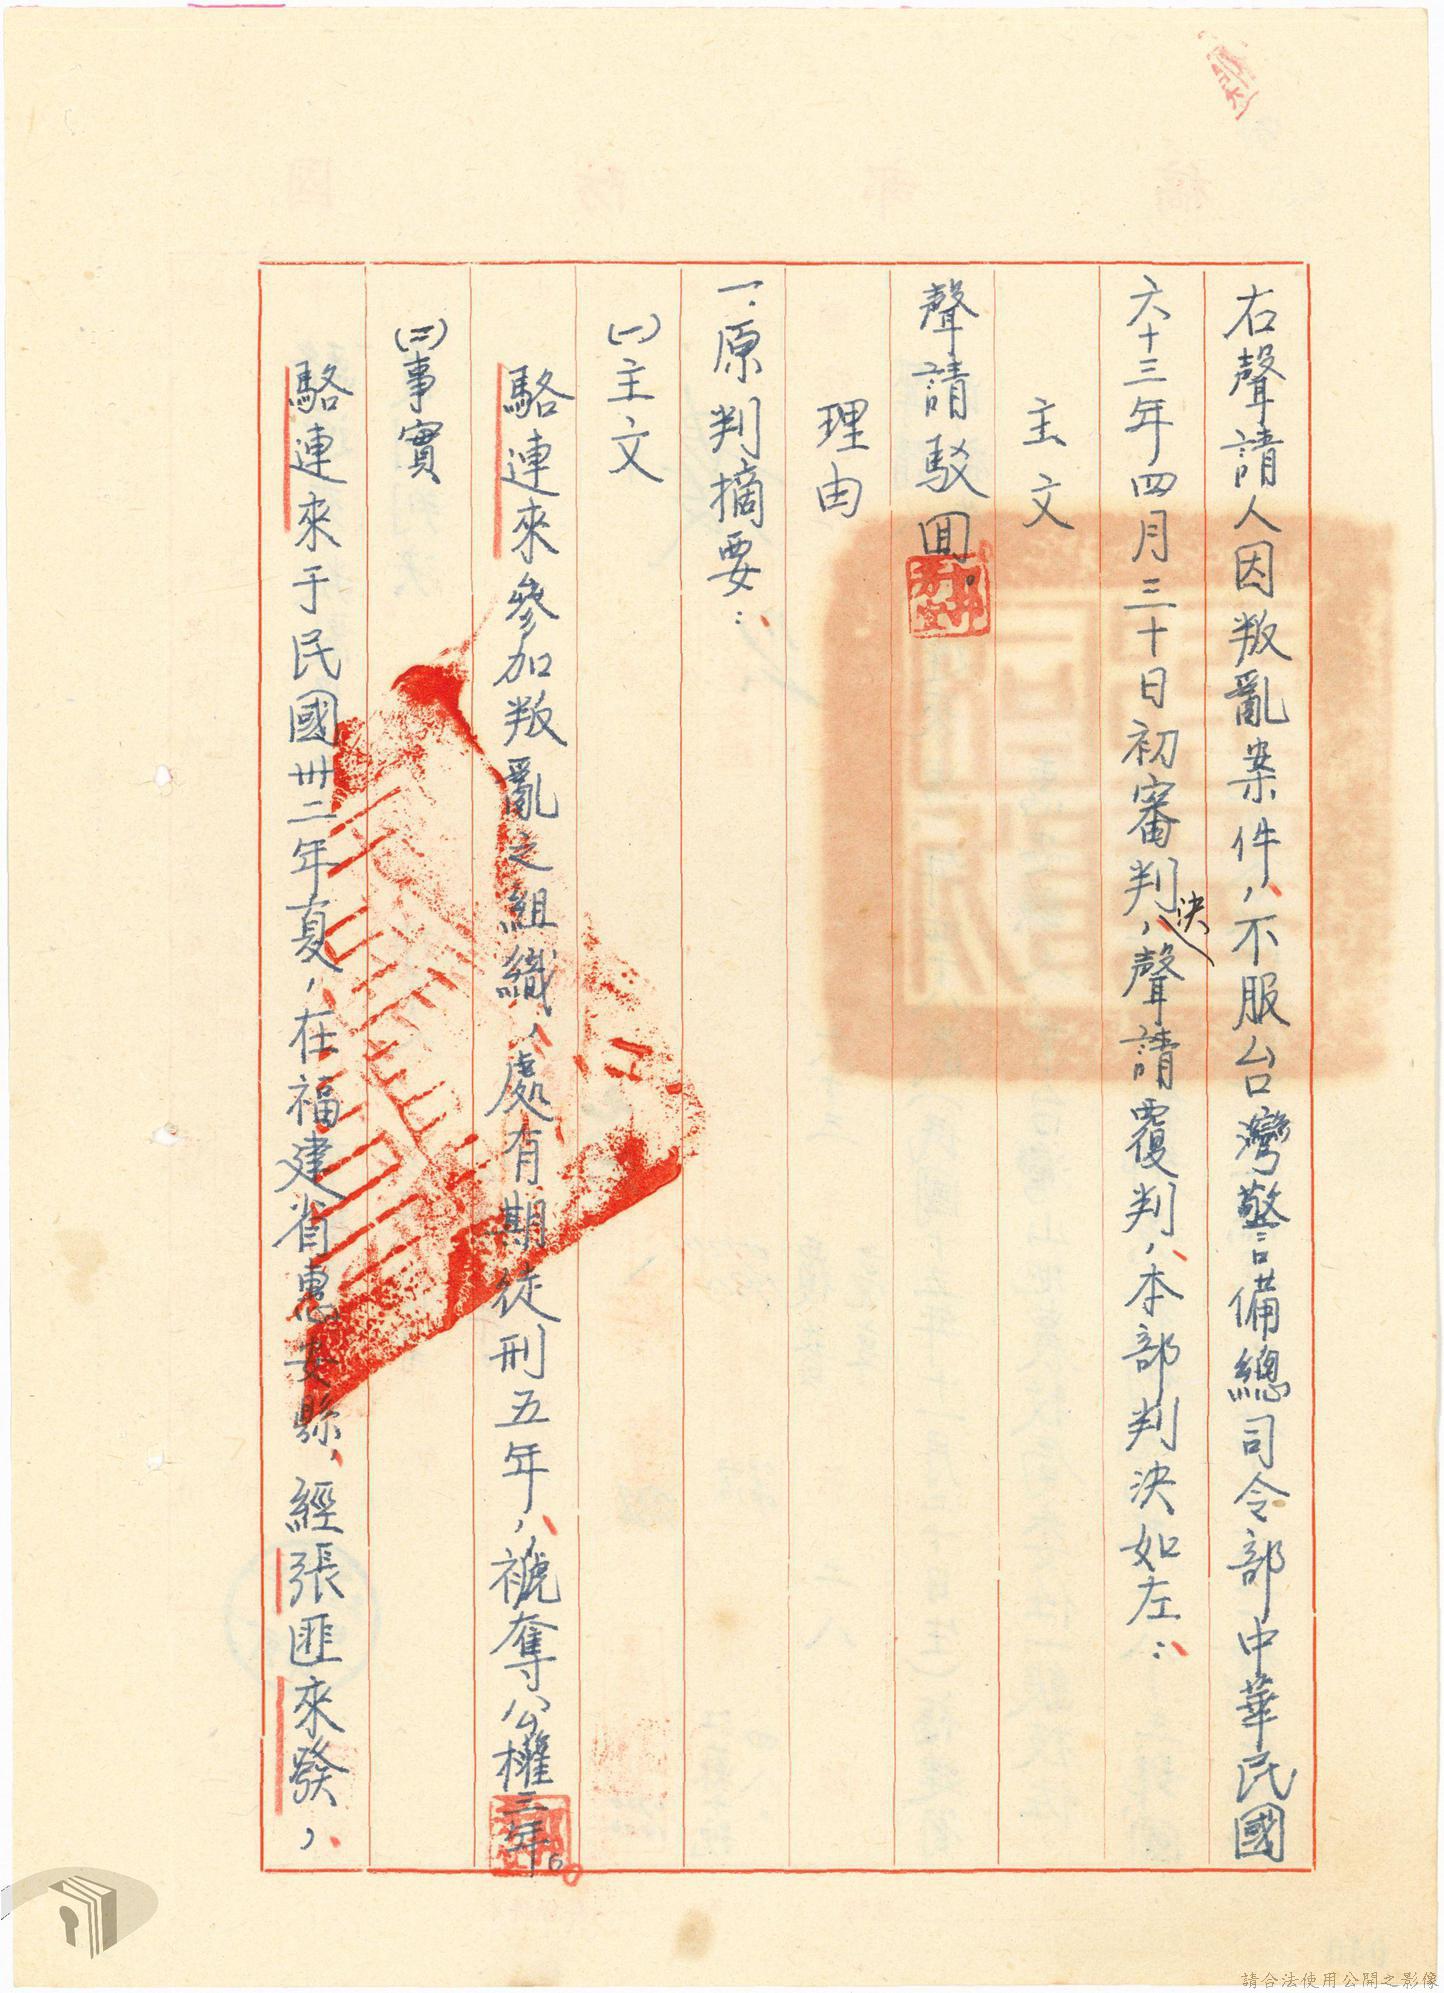 右聲請人因叛亂案件，不服台灣警備總司令部中華民國
六十三年四月三十日初審判決，聲請覆判，本部判決如左：
主文
聲請駁囬。
理由
一、原判摘要：
(一)主文
駱連來參加叛亂之組織，處有期徒刑五年，褫奪公權三年。
(二)事實
駱連來于民國卅二年夏，在福建省惠安縣，經張匪來發，
請合法使用公開之影像